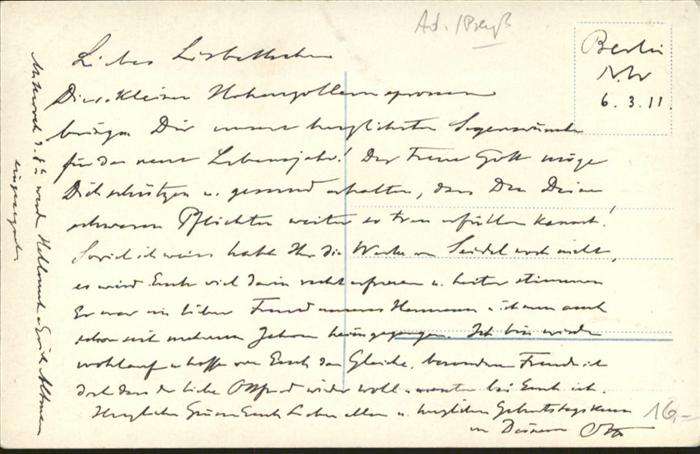 Ad. Preuß
Berlin
N.W.
6.3.11.
Liebes Lisbethchen
Diese kleinen Hohenzollernsprossen
bringen Dir unsere herzlichsten Segenswünsche
für das neue Lebensjahr! Der treue Gott möge
Dich schützen u. gesund erhalten, dass Du Deine
schweren Pflichten weiter so treu erfüllen kannst!
Soviel ich weiss habt Ihr die Werke von Seidel noch nicht,
es wird Euch viel darin recht erfreuen u. heiter stimmen
Er war ein lieber Freund unseres Hermann u. ist nun auch
schon seit mehreren Jahren heimgegangen. Ich bin wieder
wohlauf u. hoffe von Euch das Gleiche, besondere Freude ist
doch dass der liebe Otfried wieder wohl u. munter bei Euch ist.
Herzliche Grüsse Euch Lieben allen u. herzlichen Geburtstagskuss
von Deinem Otto
16,-
Mittwoch d. 8ten werden Hellmuth u. Erich
eingesegnet